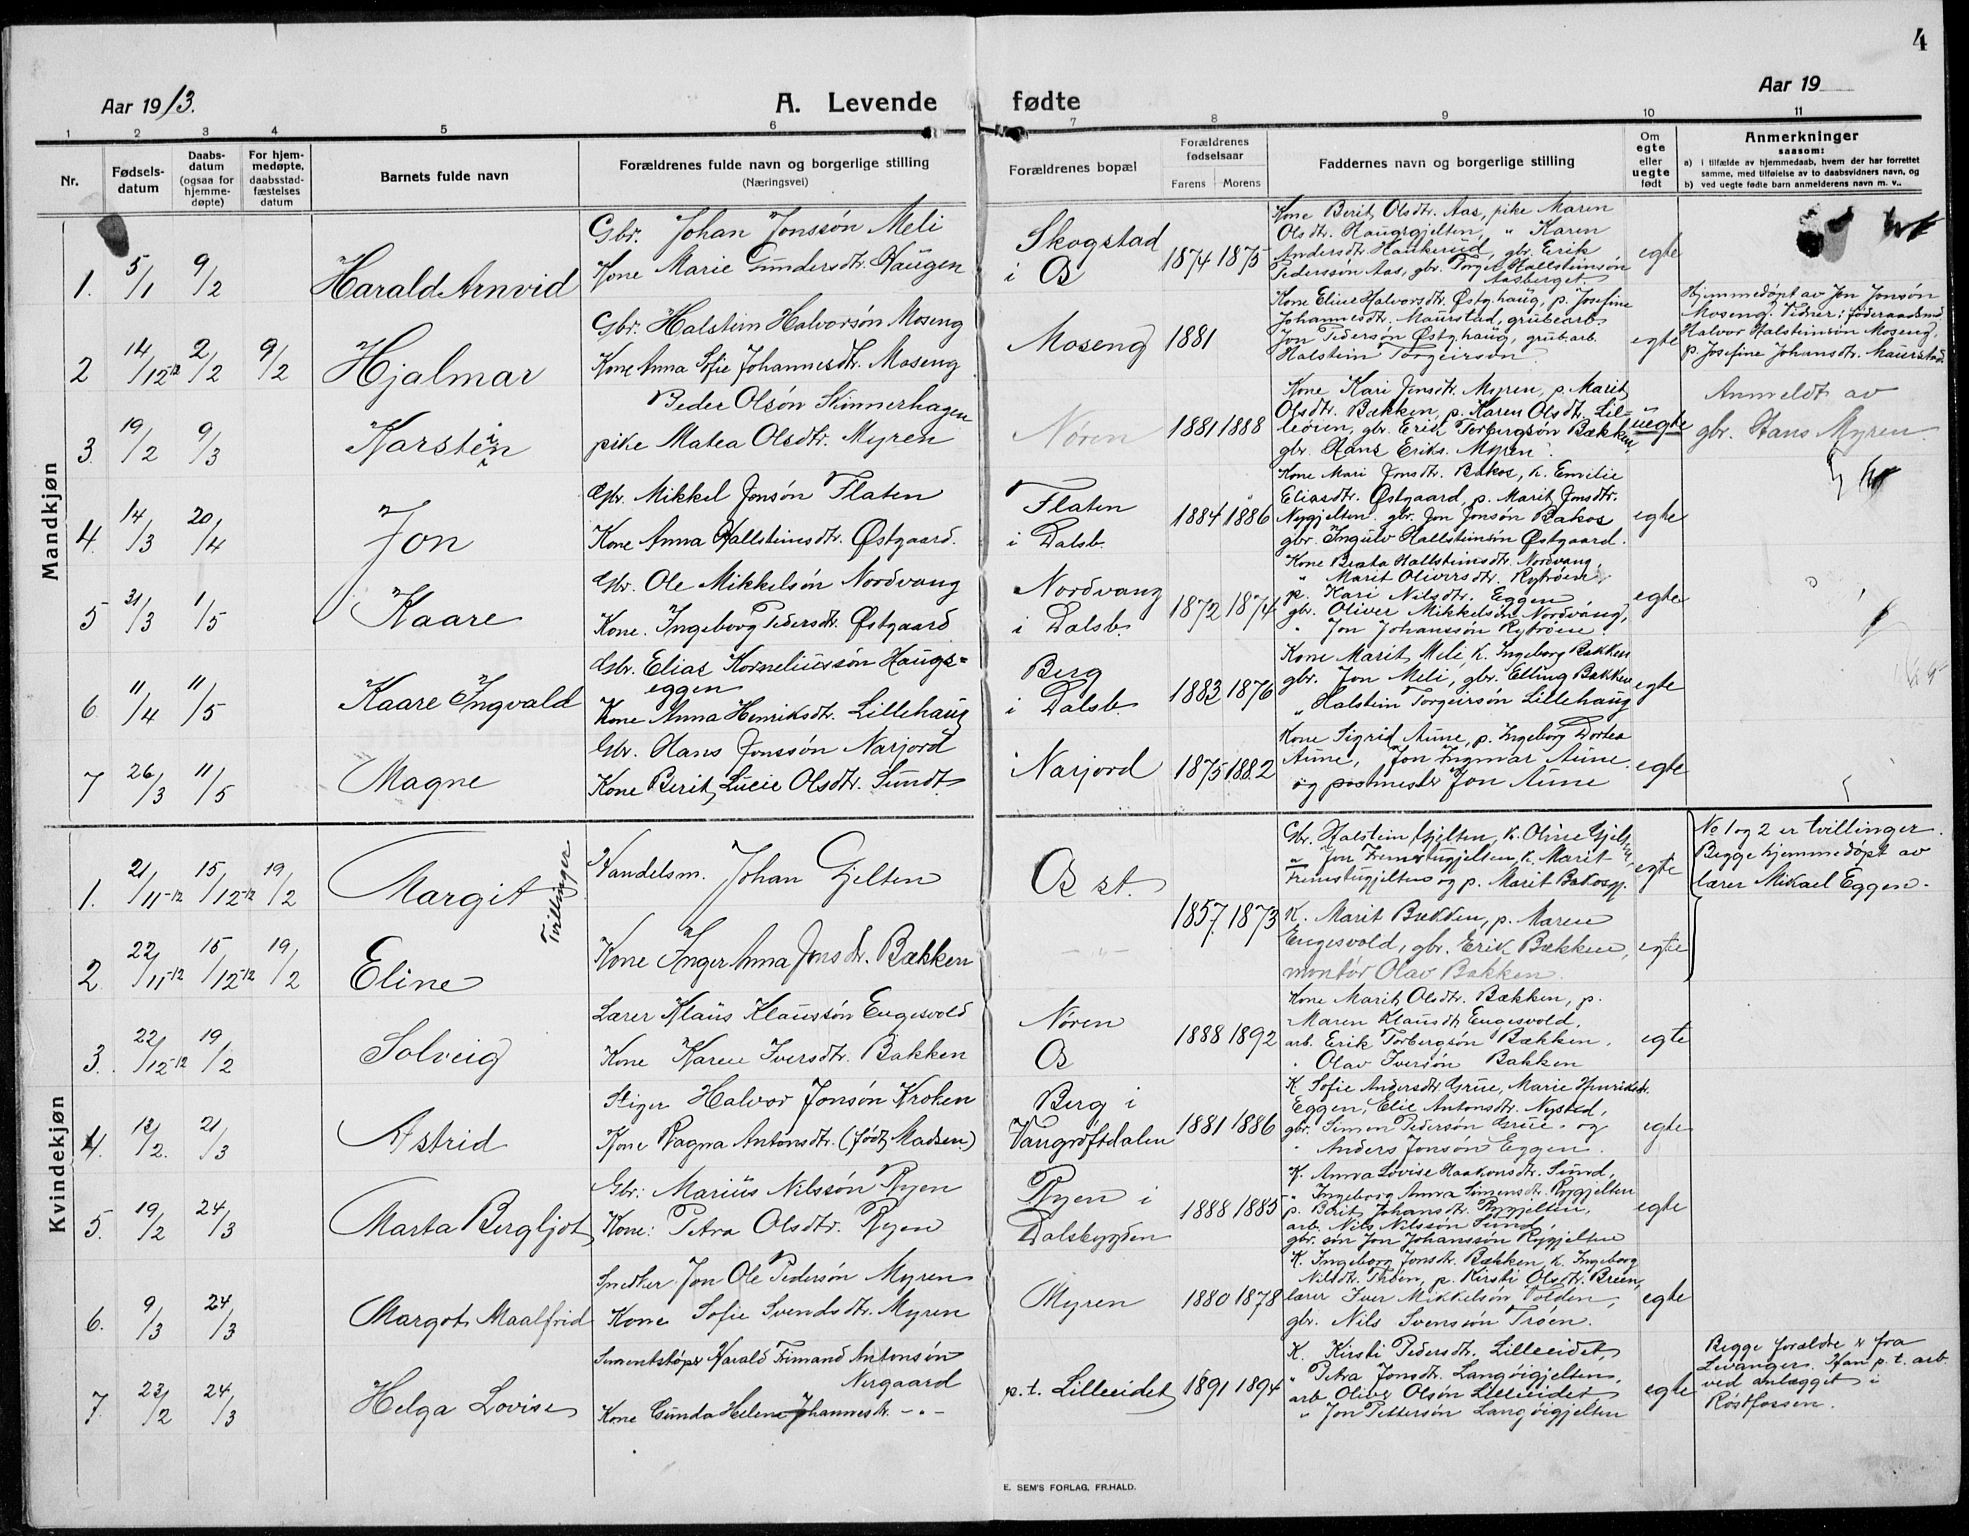 4
Aar 1913.
A. Levende fødte
Aar 19
1 2 3 4 5 6 7 8 9 10 11
Nr.
Fødsels-
datum
Daabs-
datum
(ogsaa for
hjemme-
døpte)
For hjem-
medøpte,
daabsstad-
fæstelses
datum
Barnets fulde navn
Forældrenes fulde navn og borgerlige stilling
(Næringsvei)
Forældrenes bopæl
Forældrenes
fødselsaar
Farens Morens
Faddernes navn og borgerlige stilling
Om
egte
eller
uegte
født
Anmerkninger
saasom:
a) i tilfælde av hjemmedaab, hvem der har forrettet
samme, med tilføielse av to daabsvidners navn, og
b) ved uegte fødte barn anmelderens navn m. v..
Mandkjøn
1. 5/1 9/2 Harald Arnvid
Gbr. Johan Jonssøn Meli
Kone Marie Gundersdtr. Haugen
Skogstad
i Os
1874 1875
Kone Berit Olsdtr. Aas, pike Maren
Olsdtr. Haugsgjelten, " Karen
Andersdtr. Haukerud, gbr. Erik
Pederssøn Aas, gbr. Torgel Hallsteinsøn
Aasberget.
egte
2 14/12-12 2/2 9/2 Hjalmar
Gbr. Halstein Halvorsøn Moseng
Kone Anna Sofie Johannesdtr. Moseng
Moseng 1881
Kone Eline Halvorsdtr. Østg.haug, p. Josefine
Johannesdtr. Maurstad, grubearb.
Jon Pedersøn Østg.haug, grub.arb.
Halstein Torgeirsøn.
egte
Hjemmedøpt av Jon Jonsøn
Moseng. Vidner: føderaadsmd
Halvor Halsteinsøn Moseng,
p. Josefine Johansdtr. Maurstad.
3. 19/2 9/3 Karsten
Peder Olsøn Skinnerhagen
pike Matea Olsdtr. Myren
Nøren 1881 1888
Kone Kari Jonsdtr. Myren, p. Marit
Olsdtr. Bækken, p. Karen Olsdtr. Lil-
leøien, gbr. Erik Torbergsøn Bækken,
gbr. Hans Eriks. Myren.
uegte
Anmeldt av
gbr. Hans Myren.
4. 14/3 20/4 Jon
Gbr. Mikkel Jonsøn Flaten
Kone Anna Hallsteinsdtr. Østgaard.
Flaten
i Dalsb.
1884 1886
Kone Mari Jonsdtr. Bakos, k. Emilie
Eliasdtr. Østgaard, p. Marit Jonsdtr.
Nygjelten. gbr. Jon Jonsøn Bakos
gbr. Ingulv Hallsteinsøn Østgaard.
egte
5 31/3 1/5 Kaare
Gbr. Ole Mikkelsøn Nordvang
Kone. Ingeborg Pedersdtr. Østgaard
Nordvang
i Dalsb.
1872 1874
Kone Beata Hallsteinsdtr. Nordvang,
" Marit Oliversdtr. Rytrøen,
p. Kari Nilsdtr. Eggen,
gbr. Oliver Mikkelsøn Nordvang,
" Jon Johanssøn Rytrøen.
egte
6 11/4 11/5 Kaare Ingvald
Gbr. Elias Korneliussøn Haugs=
eggen
Kone Anna Henriksdtr. Lillehaug
Berg
i Dalsb.
1883 1876
Kone Marit Meli, k. Ingeborg Bækken
gbr. Jon Meli, gbr. Elling Bækken
" Halstein Torgeirsøn Lillehaug
egte
7 26/3 11/5 Magne
Gbr. Hans Jonssøn Narjord
Kone Berit Lucie Olsdtr. Sundt.
Narjord 1875 1882
Kone Sigrid Aune, p. Ingeborg Dortea
Aune, Jon Ingmar Aune
og postmester Jon Aune
egte
Kvindekjøn
1. 21/11-12 15/12-12 19/2 Margit
Tvillinger
Handelsm. Johan Gjelten
Os st.
Gbr. Halstein Gjelten, k. Oline Gjelten,
" Jon Fremstugjelten, k. Marit
Fremstugjelten og p. Marit Bakosgj.
egte
No 1 og 2 er tvillinger.
Begge hjemmedøpt av
lærer Mikael Eggen.
2 22/11-12 15/12-12 19/2 Eline
Kone Inger Anna Jonsdtr. Bækken
1857. 1873
K. Marit Bækken, p. Maren
Engesvold, gbr. Erik Bækken,
montør Olav Bakken.
egte
3. 22/12-12 19/2 Solveig
Lærer Klaus Klaussøn Engesvold
Kone Karen Iversdtr. Bakken
Nøren
Os
1888 1892
Kone Marit Olsdtr. Bækken, p.
Maren Klausdtr. Engesvold,
arb. Erik Torbergsøn Bækken,
" Olav Iversøn Bakken
egte
4. 12/2. 21/3 Astrid
Stiger Halvor Jonsøn Kroken
Kone Ragna Antonsdtr. (født Madsen.)
Berg i
Vangrøftdalen
1881 1886
K. Sofie Andersdtr. Grue, Marie Henriksdtr.
Eggen, Elie Antonsdtr. Nysted,
gbr. Simen Pedersøn Grue. og
" Anders Jonsøn Eggen.
egte
5. 19/2 24/3 Marta Bergljot
Gbr: Marius Nilssøn Ryen
Kone: Petra Olsdtr. Ryen
Ryen i
Dalsbygden
1888 1885
K. Anna Lovise Haakonsdtr. Sund,
" Ingeborg Anna Simensdtr. Rygjelten
p. Berit Johansdtr. Rygjelten,
arb. Nils Nilssøn Sund,
gbr. søn Jon Johanssøn Rygjelten
egte
6. 9/3 24/3 Margot Maalfrid
Snedker Jon Ole Pedersøn Myren
Kone Sofie Svendsdtr. Myren
Myren 1880 1878
K. Ingeborg Jonsdtr. Bækken, k. Ingeborg
Nilsdtr. Trøen, p. Kirsti Olsdtr. Breen,
lærer Iver Mikkelsøn Volden,
gbr. Nils Svensøn Trøen.
egte
7 23/2 24/3 Helga Lovise
Sementstøper Harald Frimand Antonsøn
Nergaard
Kone Gunda Helene Johannesdtr. -"-
p.t. Lilleeidet 1891 1894
K. Kirsti Pedersdtr. Lilleeidet,
" Petra Jonsdtr. Langøigjelten,
arb. Oliver Olsøn Lilleeidet
" Jon Pettersøn Langøigjelten
egte
Begge forældre er fra
Levanger. Han p.t. arb.
ved anlægget i
Røstfossen.
E. SEM'S FORLAG, FR.HALD.